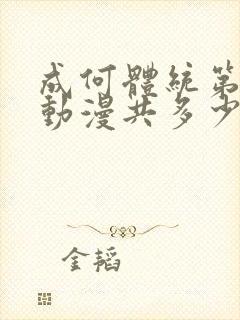 成何體統第
動漫共多少
金韬